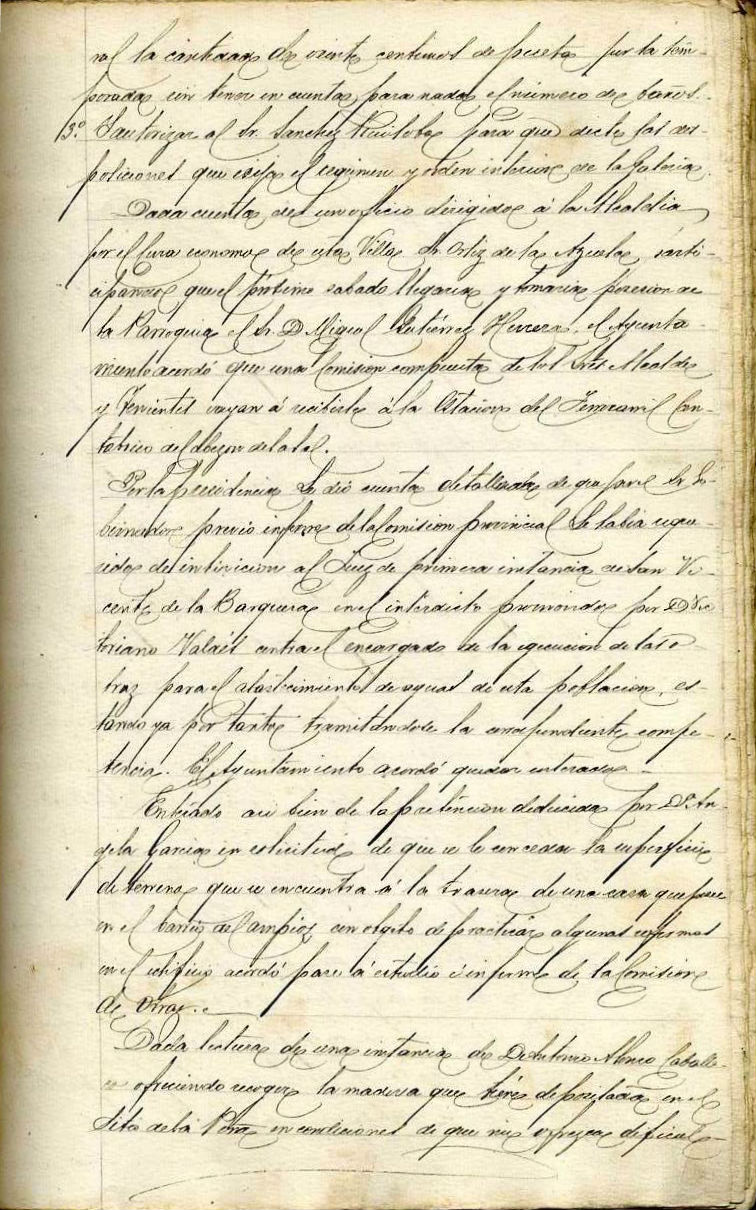 ral la cantidad de veinte centimos de peseta por la tem-
porada sin tener en cuenta para nada el número de baños.
3º Y autorizar al Sr. Sanchez para que dicte las dis-
posiciones que exija el regimen y orden interior de la Galeria.
Dada cuenta de un oficio dirigido á la Alcaldia
por el Cura economo de esta Villa Sr. Ortiz de la Azuela, parti-
cipando que el próximo sabado llegaria y tomaria posesion de
la Parroquia el Sr. D. Miguel Gutiérrez Herrera, el Ayunta-
miento acordó que una Comision compuesta de los Sres Alcalde
y Tenientes vayan á recibirle á la Estacion del Ferrocarril Can-
tabrico de Cabezon de la Sal.
Por la presidencia se dió cuenta detallada de que por el Sr. Go-
bernador previo informe de la Comision provincial se habia reque-
rido de inhibicion al Juez de primera instancia de San Vi-
cente de la Barquera en el interdicto promovido por D. Vic-
toriano Valdés contra el encargado de la ejecucion de las o-
bras para el abastecimiento de aguas de esta poblacion, es-
tando ya por tanto tramitandose la correspondiente compe-
tencia. El Ayuntamiento acordó quedar enterado.
Enterado asi bien de la pretension deducida por Dª An-
gela Garcia en solicitud de que se le conceda la superficie
de terreno que se encuentra á la trasera de una casa que posee
en el barrio de Campios con objeto de practicar algunas reformas
en el edificio acordó pase á estudio é informe de la Comision
de Obras.
Dada lectura de una instancia de D. Antonio Alonso Caballe-
ro ofreciendo recoger la madera que tiene depositada en el
sitio de la Peña en condiciones de que no ofrezca dificul-